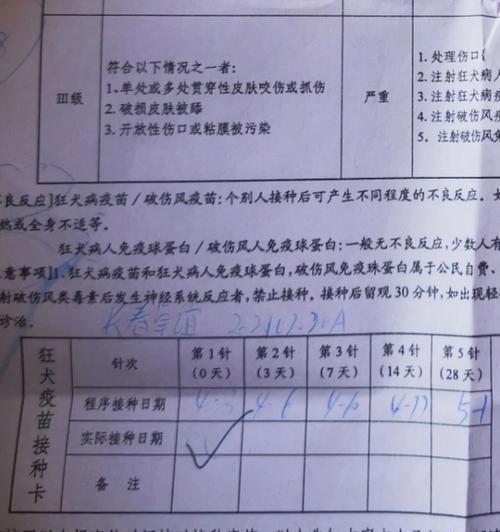 符合以下情况之一者:
1、单处或多处贯穿性皮肤咬伤或抓伤
Ⅲ级
2、破损皮肤被舔
3、开放性伤口或粘膜被污染
严重
1. 处理伤口
2. 注射狂犬病人
3. 注射狂犬病
4. 注射破伤风
5. 注射破伤风
不良反应]狂犬病疫苗/破伤风疫苗:个别人接种后可产生不同程度的不良反应。如
热或全身不适等。
狂犬病人免疫球蛋白/破伤风人免疫球蛋白:一般无不良反应,少数人有
意事项]1.狂犬病疫苗和狂犬病人免疫球蛋白,破伤风免疫球蛋白属于公民自费、
射破伤风类毒素后发生神经系统反应者,禁止接种。接种后留观30分钟,如出现轻
诊治。
长春卓谊
狂犬疫苗接种卡
针次 第1针(0天) 第2针(3天) 第3针(7天) 第4针(14天) 第5针(28天)
程序接种日期 4-3 4-6 4-10 4-17 5-1
实际接种日期
备 注